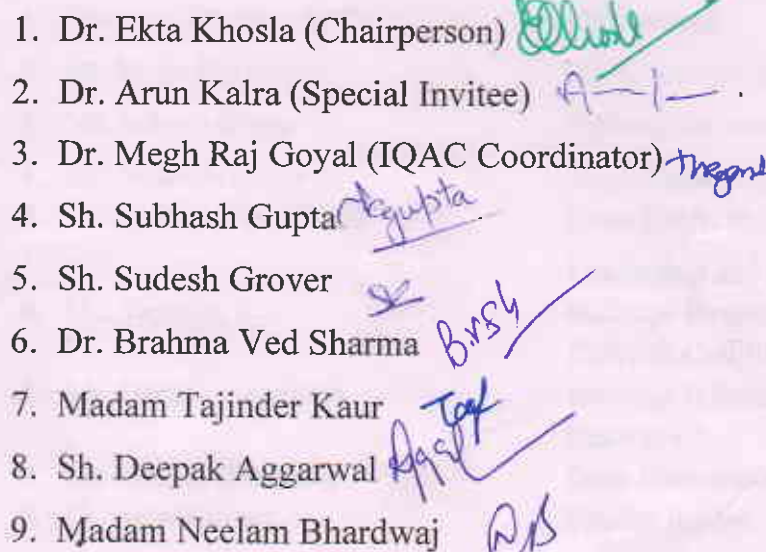 1. Dr. Ekta Khosla (Chairperson)
2. Dr. Arun Kalra (Special Invitee)
3. Dr. Megh Raj Goyal (IQAC Coordinator)
4. Sh. Subhash Gupta
5. Sh. Sudesh Grover
6. Dr. Brahma Ved Sharma
7. Madam Tajinder Kaur
8. Sh. Deepak Aggarwal
9. Madam Neelam Bhardwaj